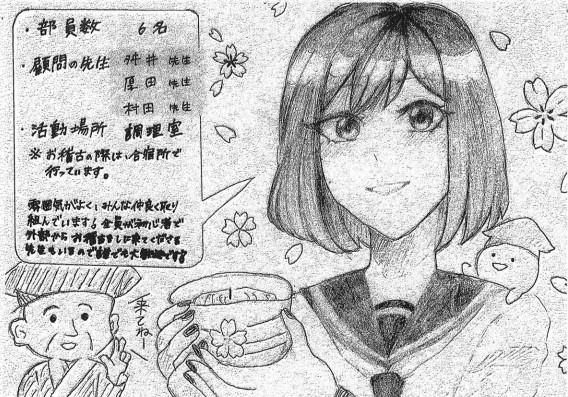 ・部員数 6名
・顧問の先生 舛井 先生
厚田 先生
村田 先生
・活動場所 調理室
※お稽古の際は、合宿所で
行っています。
雰囲気がよく、みんな仲良く取り
組んでいます!全員が初心者で
外部からお稽古をしに来てくださる
先生もいるので誰でも大歓迎です!
来てねー